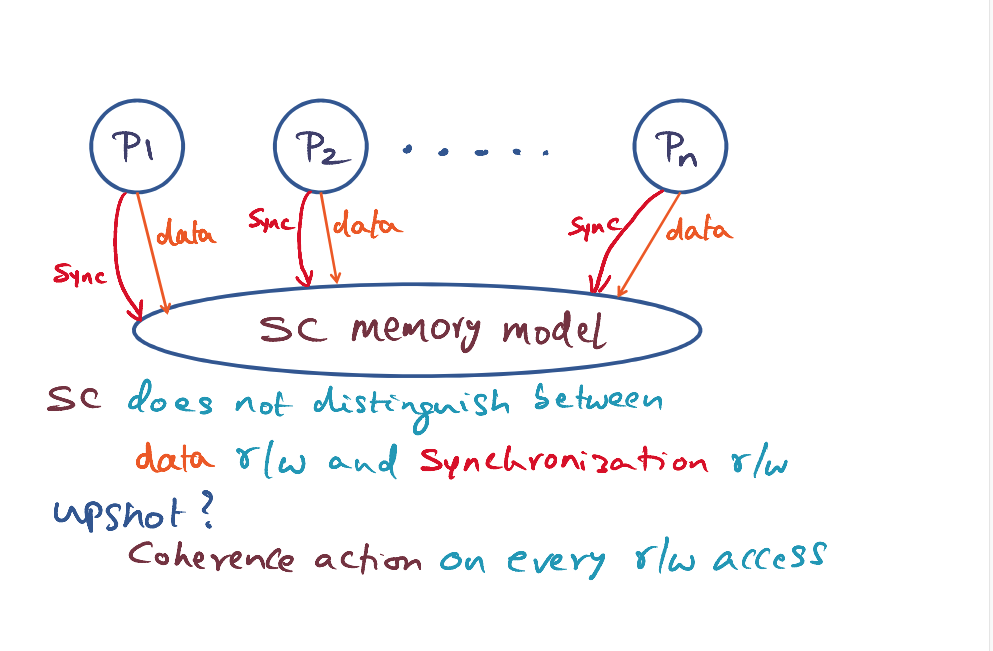 P1 P2 ..... Pn
Sync data Sync data Sync data
SC memory model
SC does not distinguish between
data r/w and Synchronization r/w
upshot?
Coherence action on every r/w access